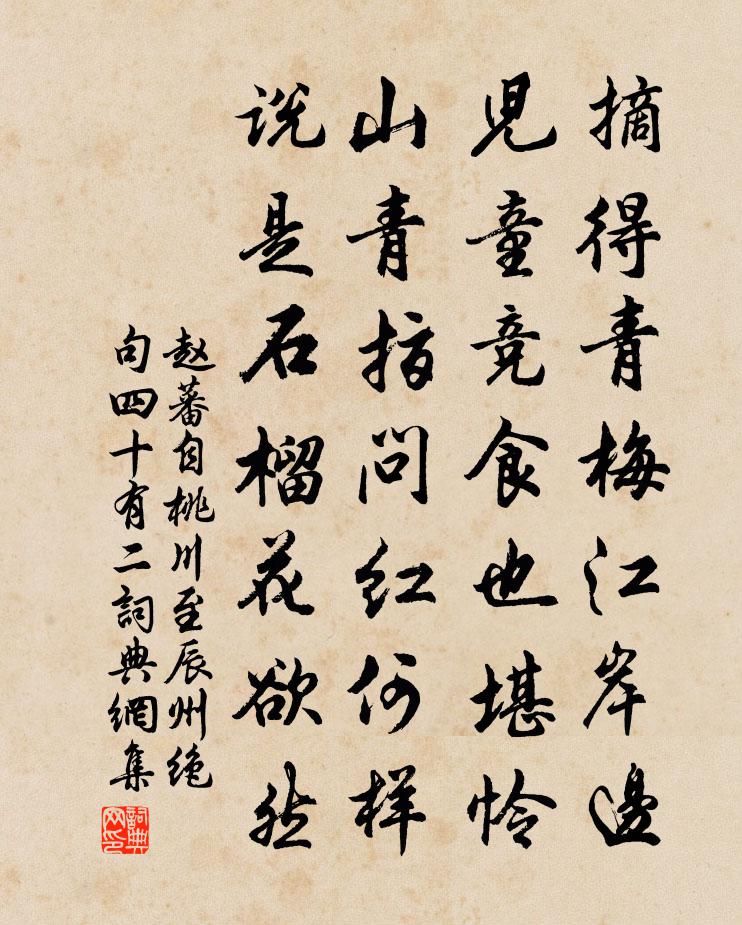 摘得青梅江岸邊
児童竞食也堪怜
山青指问红何样
说是石榴花欲然
赵蕃自桃川至辰州绝
句四十有二詞典網集
詞典
网印